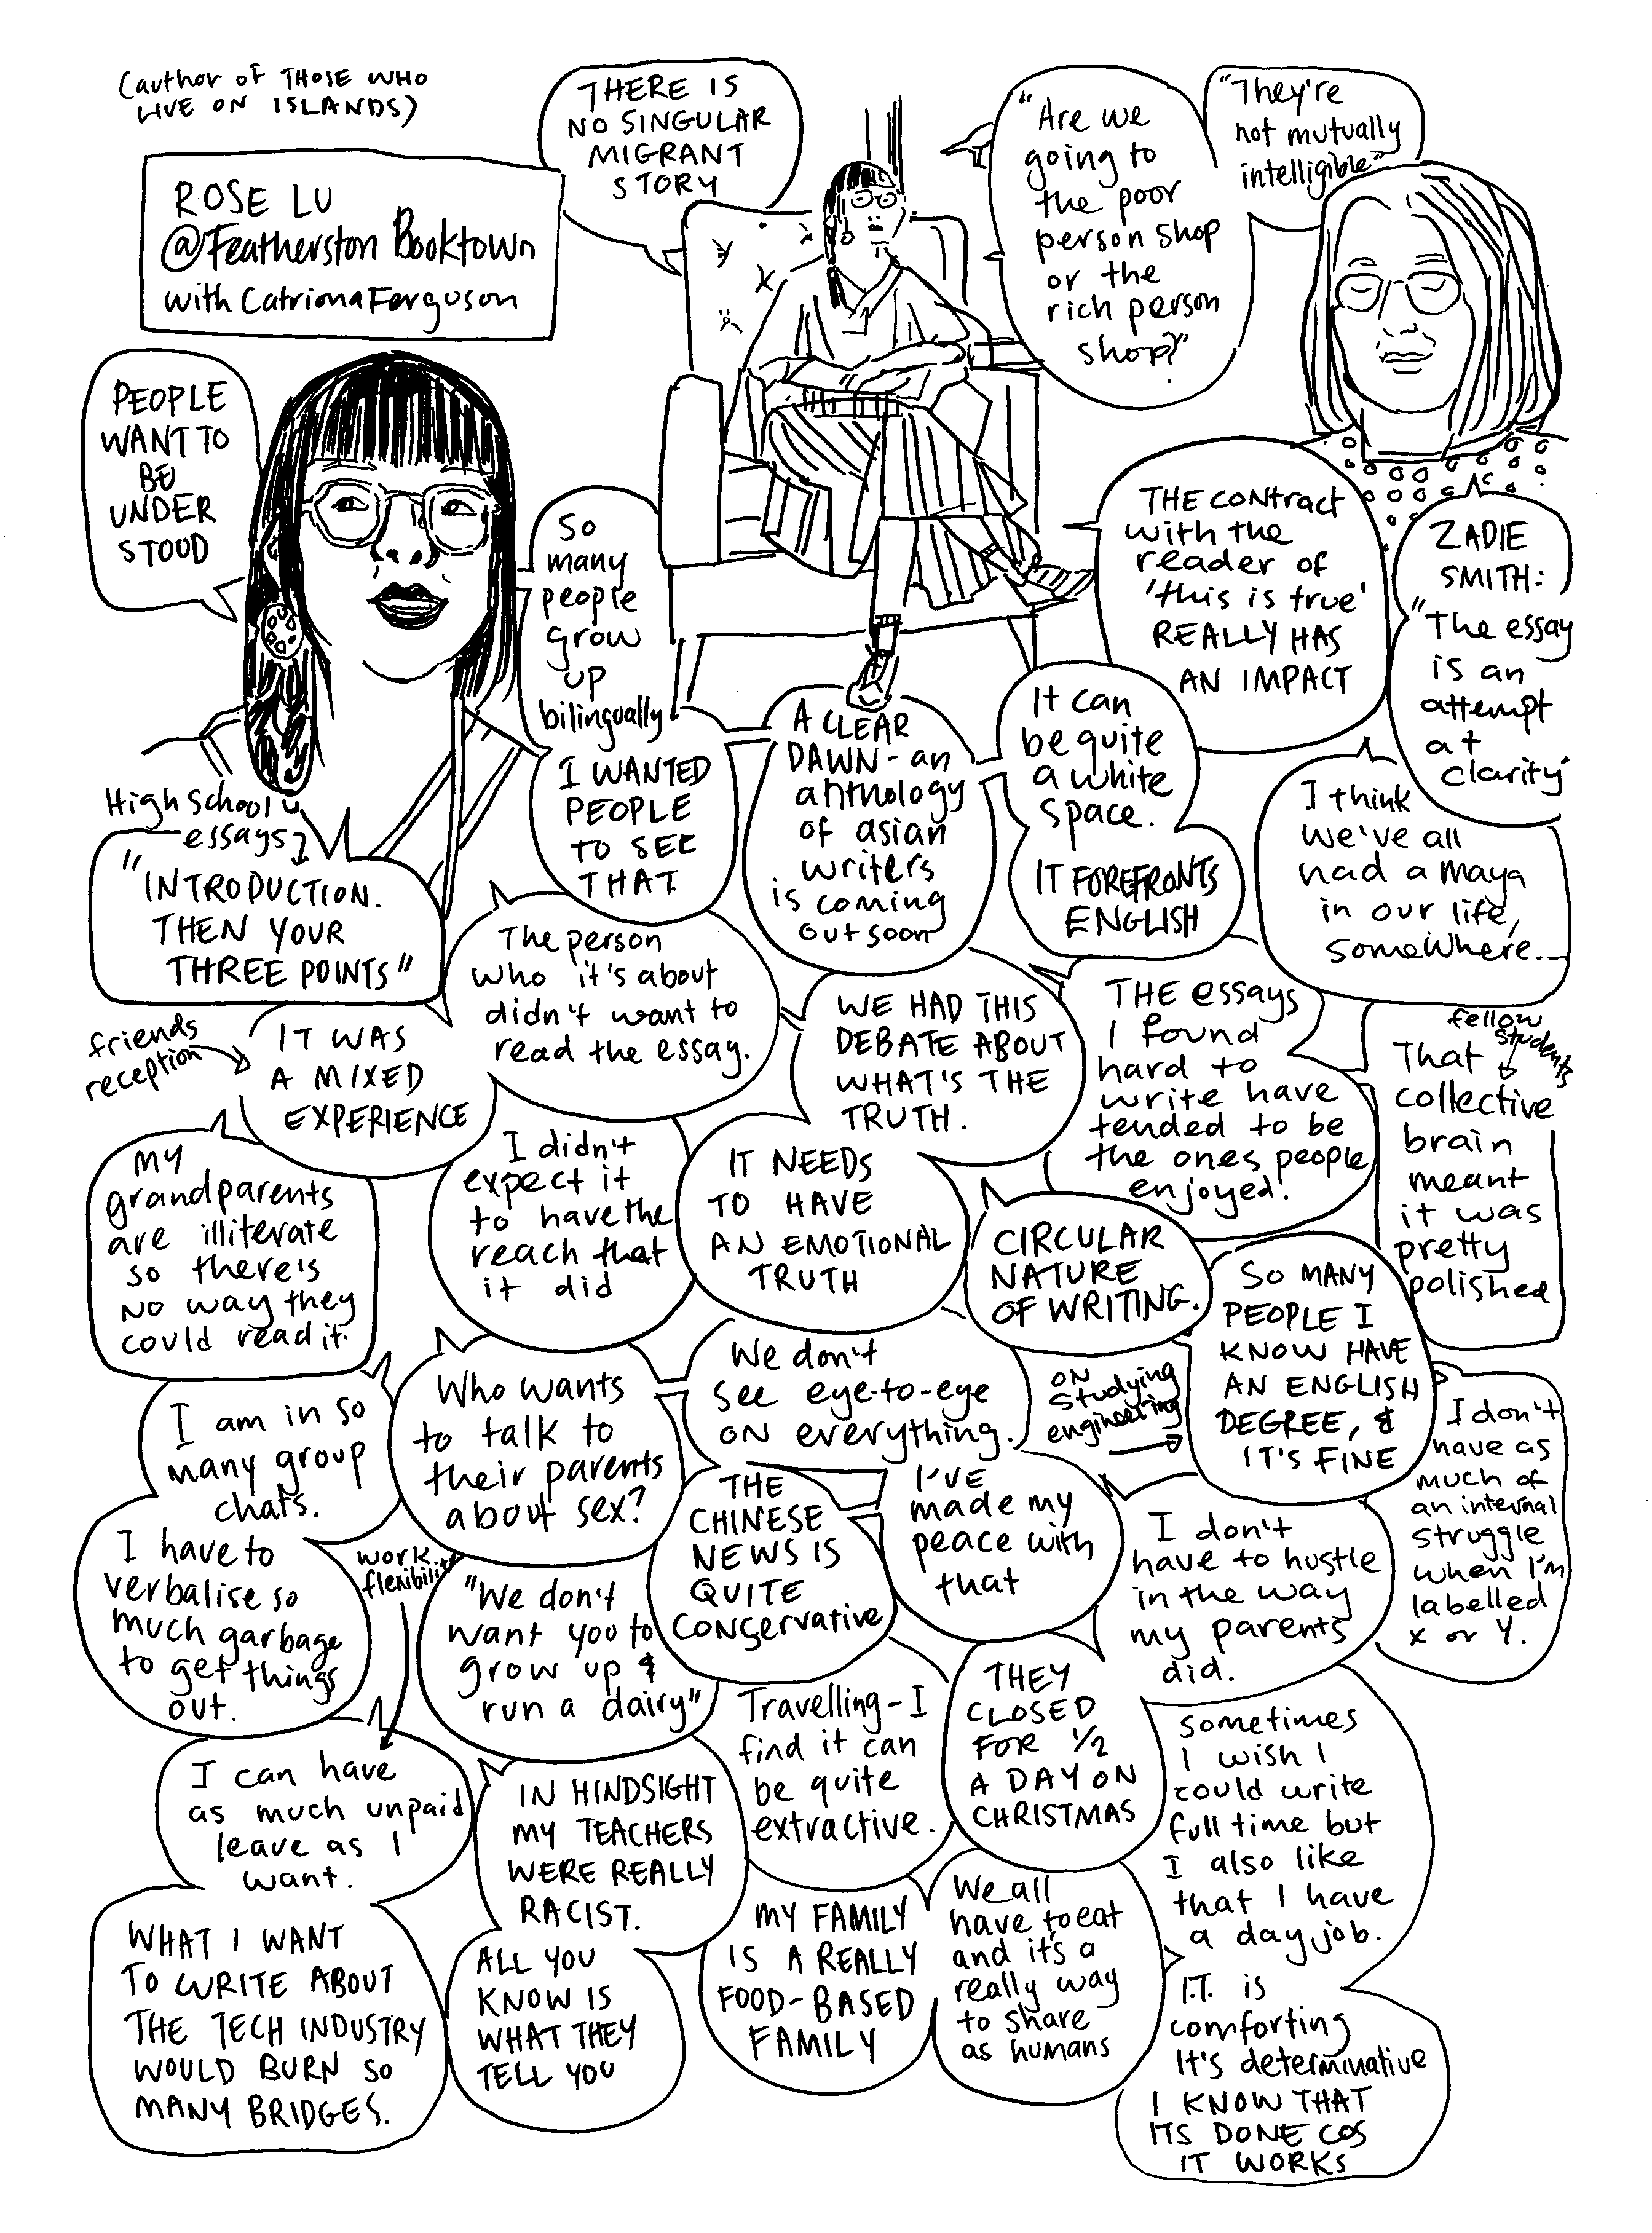 (author of THOSE WHO
LIVE ON ISLANDS)
ROSE LU
@Featherston Booktown
with Catriona Ferguson
THERE IS
NO SINGULAR
MIGRANT
STORY
"Are we
going to
the poor
person shop
or the
rich person
shop?"
"They're
not mutually
intelligible"
PEOPLE
WANT TO
BE
UNDER
STOOD
So
many
people
grow
up
bilingually
I WANTED
PEOPLE
TO SEE
THAT.
THE CONtRACt
with the
reader of
'this is true'
REALLY HAS
AN IMPACT
ZADIE
SMITH:
"The essay
is an
attempt
at
clarity"
High school
essays
"INTRODUCTION.
THEN YOUR
THREE POINTS"
A CLEAR
DAWN - an
anthology
of asian
writers
is coming
out soon
It can
be quite
a white
space.
IT FOREFRONTS
ENGLISH
I think
we've all
had a maya
in our life,
somewhere...
The person
who it's about
didn't want to
read the essay.
friends
reception
IT WAS
A MIXED
EXPERIENCE
WE HAD THIS
DEBATE ABOUT
WHAT'S THE
TRUTH.
THE essays
I found
hard to
write have
tended to be
the ones people
enjoyed!
fellow
students
That
collective
brain
meant
it was
pretty
polished
My
grandparents
are illiterate
so there's
no way they
could read it.
I didn't
expect it
to have the
reach that
it did
IT NEEDS
TO HAVE
AN EMOTIONAL
TRUTH
CIRCULAR
NATURE
OF WRITING.
on
studying
engineering
SO MANY
PEOPLE I
KNOW HAVE
AN ENGLISH
DEGREE, &
IT'S FINE
I don't
have as
much of
an internal
struggle
when I'm
labelled
x or Y.
I am in so
many group
chats.
Who wants
to talk to
their parents
about sex?
We don't
see eye-to-eye
on everything.
THE
CHINESE
NEWS IS
QUITE
CONSERVATIVE
I'VE
made my
peace with
that
I don't
have to hustle
in the way
my parents
did.
I have to
verbalise so
much garbage
to get things
out.
work
flexibility
"We don't
want you to
grow up &
run a dairy"
Travelling - I
find it can
be quite
extractive.
THEY
CLOSED
FOR 1/2
A DAY ON
CHRISTMAS
sometimes
I wish I
could write
full time but
I also like
that I have
a day job.
I can have
as much unpaid
leave as I
want.
IN HINDSIGHT
MY TEACHERS
WERE REALLY
RACIST.
WHAT I WANT
TO WRITE ABOUT
THE TECH INDUSTRY
WOULD BURN SO
MANY BRIDGES.
ALL YOU
KNOW IS
WHAT THEY
TELL YOU
MY FAMILY
IS A REALLY
FOOD-BASED
FAMILY
We all
have to eat
and it's a
really way
to share
as humans
I.T. is
comforting
It's determinative
I KNOW THAT
ITS DONE COS
IT WORKS